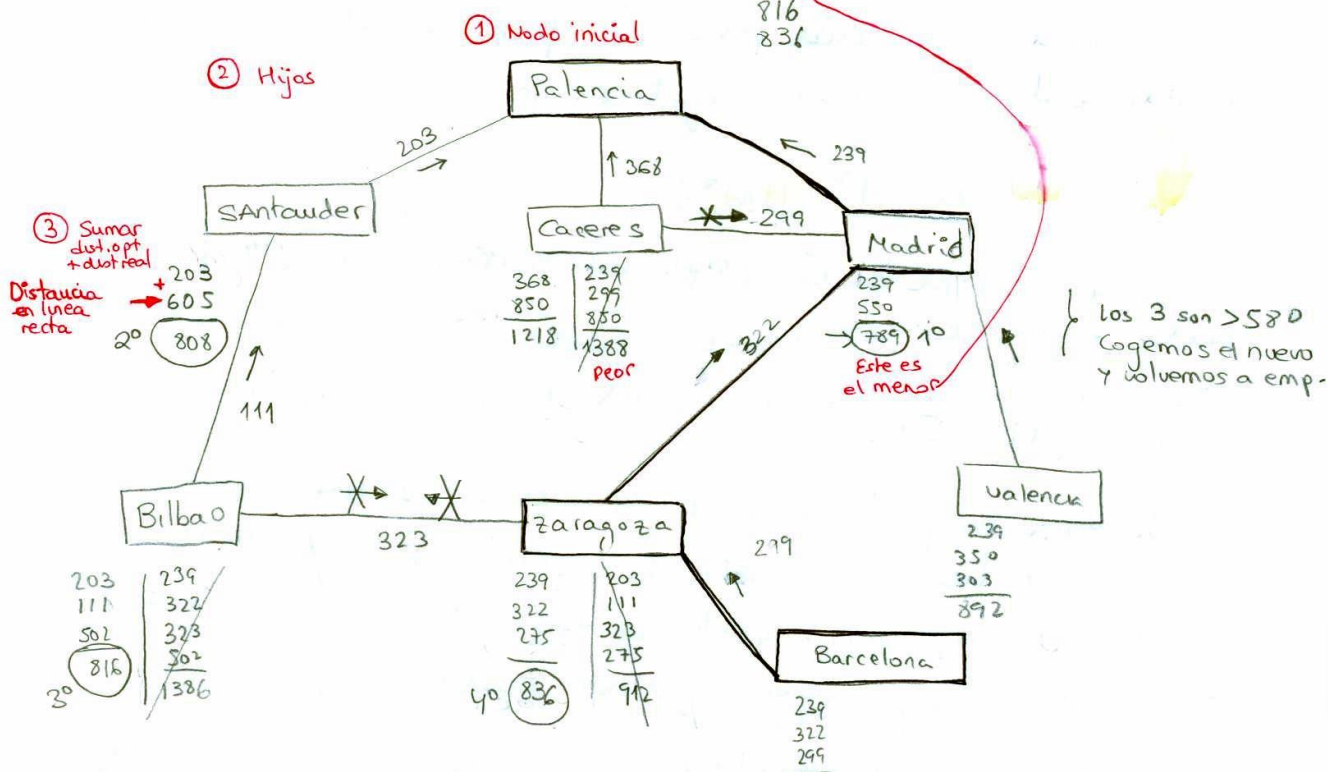 816
836
① Nodo inicial
② Hijos
Palencia
203
368
239
SAntander
Caceres
299
Madrid
③ Sumar
dist.opt
+ dist real
+203
Distancia
en linea
recta
605
2º 808
368
850
1218
239
299
850
1388
peor
239
550
789 1º
Este es
el menor
Los 3 son >580
Cogemos el nuevo
y volvemos a emp.
322
111
Bilbao
323
Zaragoza
Valencia
239
350
303
892
299
203
111
502
3º 816
239
322
323
502
1386
239
322
275
4º 836
203
111
323
275
912
Barcelona
239
322
299